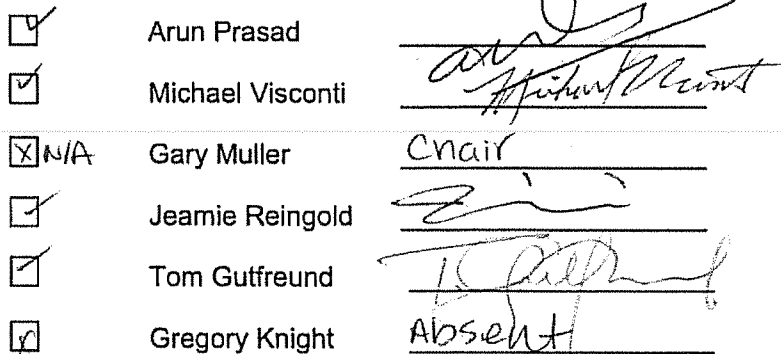 Arun Prasad
Michael Visconti
N/A Gary Muller Chair
Jeamie Reingold
Tom Gutfreund
Gregory Knight Absent